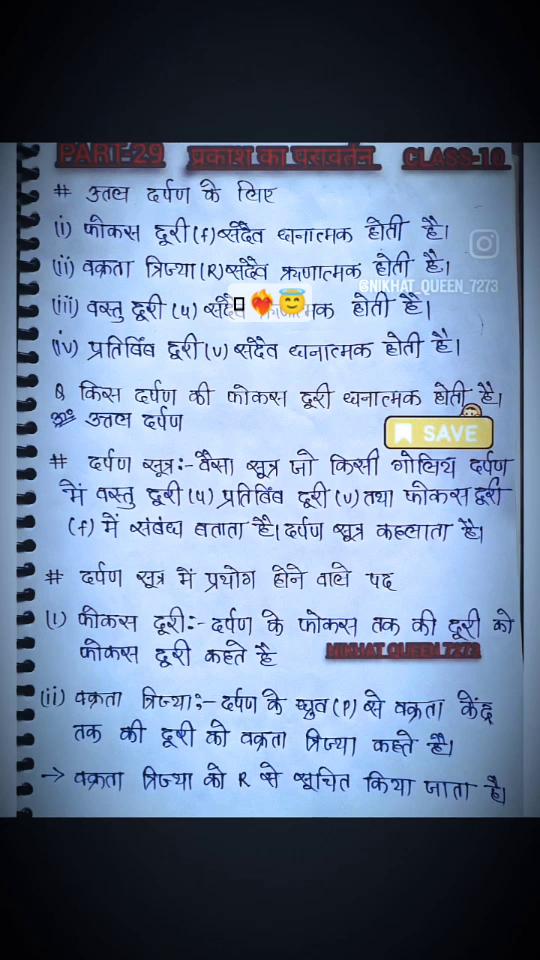 PART-29 प्रकाश का परावर्तन CLASS-10
# उतल दर्पण के लिए
(i) फोकस दूरी (f) सदैव धनात्मक होती है।
(ii) वक्रता त्रिज्या (R) सदैव ऋणात्मक होती है।
@NIKHAT_QUEEN_7273
(iii) वस्तु दूरी (u) होती है।
(iv) प्रतिबिंब दूरी (v) सदैव धनात्मक होती है।
Q किस दर्पण की फोकस दूरी धनात्मक होती है।
उत्तल दर्पण
SAVE
# दर्पण सूत्र:- वैसा सूत्र जो किसी गोलिय दर्पण
में वस्तु दूरी (u) प्रतिबिंब दूरी (v) तथा फोकस दूरी
(f) में संबंध बताता है। दर्पण सूत्र कहलाता है।
# दर्पण सूत्र में प्रयोग होने वाले पद
(i) फोकस दूरी:- दर्पण के फोकस तक की दूरी को
फोकस दूरी कहते है
NIKHAT QUEEN 7273
(ii) वक्रता त्रिज्या:- दर्पण के ध्रुव (P) से वक्रता केंद्र
तक की दूरी को वक्रता त्रिज्या कहते है।
→ वक्रता त्रिज्या को R से सूचित किया जाता है।